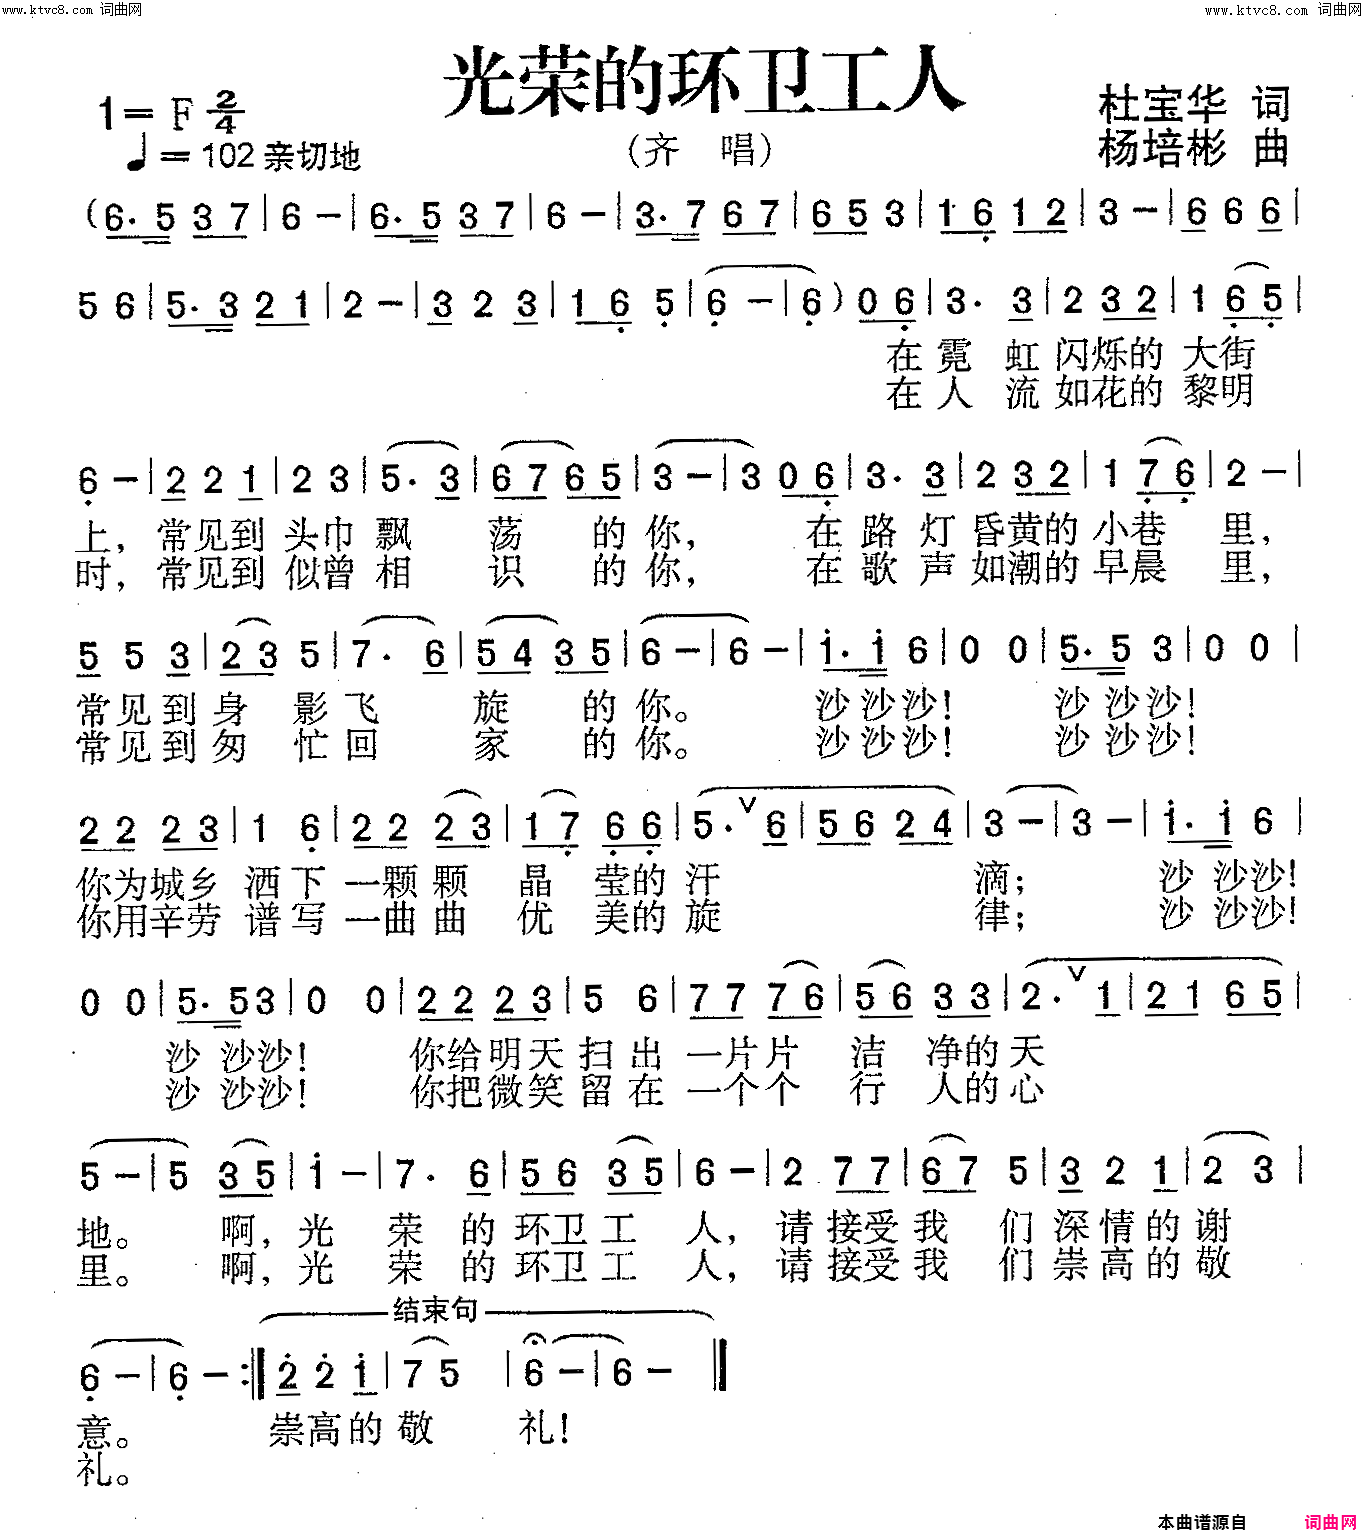 www.ktvc8.com 词曲网
www.ktvc8.com 词曲网
光荣的环卫工人
1= F 2/4
杜宝华 词
♩= 102 亲切地
(齐 唱)
杨培彬 曲
(6. 5 3 7 | 6 - | 6. 5 3 7 | 6 - | 3. 7 6 7 | 6 5 3 | 1 6 1 2 | 3 - | 6 6 6 |
5 6 | 5. 3 2 1 | 2 - | 3 2 3 | 1 6 5 | 6 - | 6 ) 0 6 | 3. 3 | 2 3 2 | 1 6 5 |
在霓 虹闪烁的 大街
在人 流如花的 黎明
6 - | 2 2 1 | 2 3 | 5. 3 | 6 7 6 5 | 3 - | 3 0 6 | 3. 3 | 2 3 2 | 1 7 6 | 2 - |
上, 常见到 头巾 飘 荡 的 你, 在 路 灯 昏黄的 小巷 里,
时, 常见到 似曾 相 识 的 你, 在 歌 声 如潮的 早晨 里,
5 5 3 | 2 3 5 | 7. 6 | 5 4 3 5 | 6 - | 6 - | 1. 1 6 | 0 0 | 5. 5 3 | 0 0 |
常见到 身 影 飞 旋 的 你。 沙沙沙! 沙沙沙!
常见到 匆 忙 回 家 的 你。 沙沙沙! 沙沙沙!
2 2 2 3 | 1 6 | 2 2 2 3 | 1 7 6 6 | 5. ∨ 6 | 5 6 2 4 | 3 - | 3 - | 1. 1 6 |
你为城乡 洒 下 一颗颗 晶 莹的 汗 滴; 沙 沙沙!
你用辛劳 谱 写 一曲曲 优 美的 旋 律; 沙 沙沙!
0 0 | 5. 5 3 | 0 0 | 2 2 2 3 | 5 6 | 7 7 7 6 | 5 6 3 3 | 2. ∨ 1 | 2 1 6 5 |
沙 沙沙! 你给明天 扫 出 一片片 洁 净的 天
沙 沙沙! 你把微笑 留 在 一个个 行 人的 心
5 - | 5 3 5 | 1 - | 7. 6 | 5 6 3 5 | 6 - | 2 7 7 | 6 7 5 | 3 2 1 | 2 3 |
地。 啊, 光 荣 的 环卫 工 人, 请 接受 我 们 深 情 的 谢
里。 啊, 光 荣 的 环卫 工 人, 请 接受 我 们 崇 高 的 敬
结束句
6 - | 6 - :‖ 2 2 1 | 7 5 | 6 - | 6 - ‖
意。 崇高的 敬 礼!
礼。
本曲谱源自 词曲网